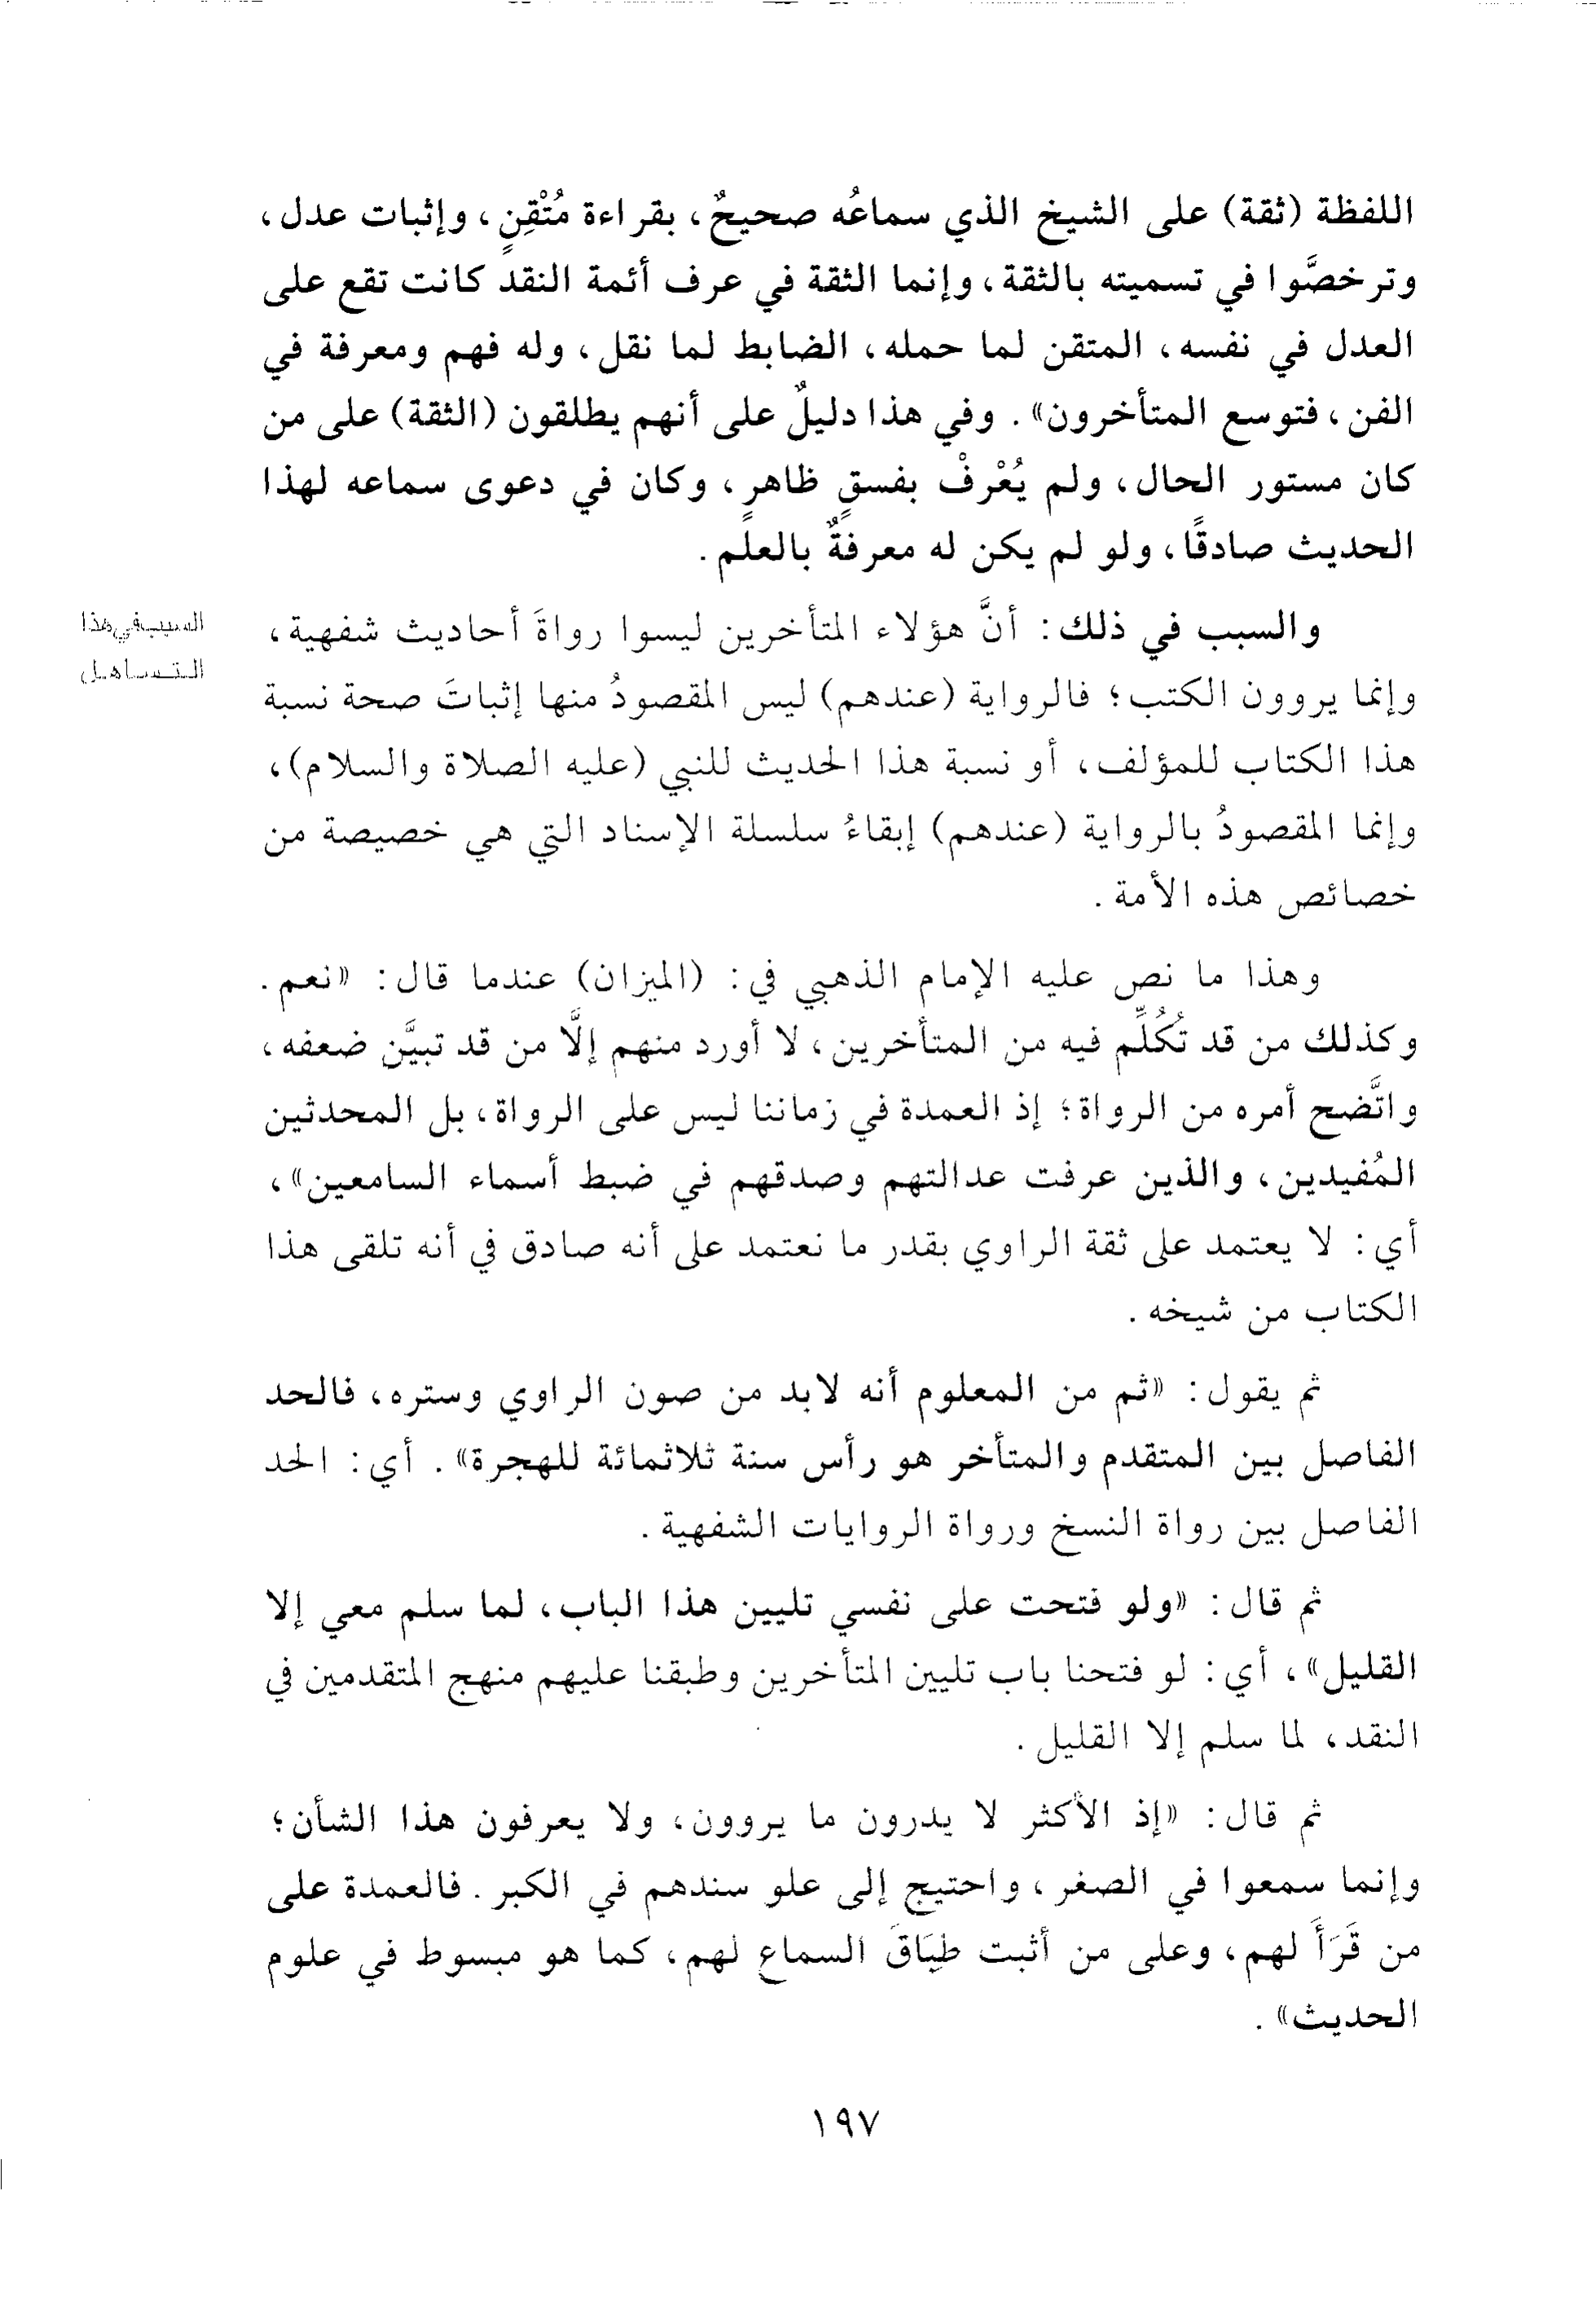 اللفظة (ثقة) على الشيخ الذي سماعُه صحيحٌ، بقراءة مُتْقِنٍ، وإثبات عدل،
وترخصَّوا في تسميته بالثقة، وإنما الثقة في عرف أئمة النقد كانت تقع على
العدل في نفسه، المتقن لما حمله، الضابط لما نقل، وله فهم ومعرفة في
الفن، فتوسع المتأخرون». وفي هذا دليلٌ على أنهم يطلقون (الثقة) على من
كان مستور الحال، ولم يُعْرفْ بفسقٍ ظاهرٍ، وكان في دعوى سماعه لهذا
الحديث صادقًا، ولو لم يكن له معرفةٌ بالعلم.
السبب في هذا
التساهل
والسبب في ذلك: أنَّ هؤلاء المتأخرين ليسوا رواةَ أحاديث شفهية،
وإنما يروون الكتب؛ فالرواية (عندهم) ليس المقصودُ منها إثباتَ صحة نسبة
هذا الكتاب للمؤلف، أو نسبة هذا الحديث للنبي (عليه الصلاة والسلام)،
وإنما المقصودُ بالرواية (عندهم) إبقاءُ سلسلة الإسناد التي هي خصيصة من
خصائص هذه الأمة.
وهذا ما نص عليه الإمام الذهبي في: (الميزان) عندما قال: «نعم.
وكذلك من قد تُكُلِّم فيه من المتأخرين، لا أورد منهم إلَّا من قد تبيَّن ضعفه،
واتَّضح أمره من الرواة؛ إذ العمدة في زماننا ليس على الرواة، بل المحدثين
المُفيدين، والذين عرفت عدالتهم وصدقهم في ضبط أسماء السامعين»،
أي: لا يعتمد على ثقة الراوي بقدر ما نعتمد على أنه صادق في أنه تلقى هذا
الكتاب من شيخه.
ثم يقول: «ثم من المعلوم أنه لابد من صون الراوي وستره، فالحد
الفاصل بين المتقدم والمتأخر هو رأس سنة ثلاثمائة للهجرة». أي: الحد
الفاصل بين رواة النسخ ورواة الروايات الشفهية.
ثم قال: «ولو فتحت على نفسي تليين هذا الباب، لما سلم معي إلا
القليل»، أي: لو فتحنا باب تليين المتأخرين وطبقنا عليهم منهج المتقدمين في
النقد، لما سلم إلا القليل.
ثم قال: «إذ الأكثر لا يدرون ما يروون، ولا يعرفون هذا الشأن؛
وإنما سمعوا في الصغر، واحتيج إلى علو سندهم في الكبر. فالعمدة على
من قَرَأَ لهم، وعلى من أثبت طِبَاقَ السماع لهم، كما هو مبسوط في علوم
الحديث».
١٩٧